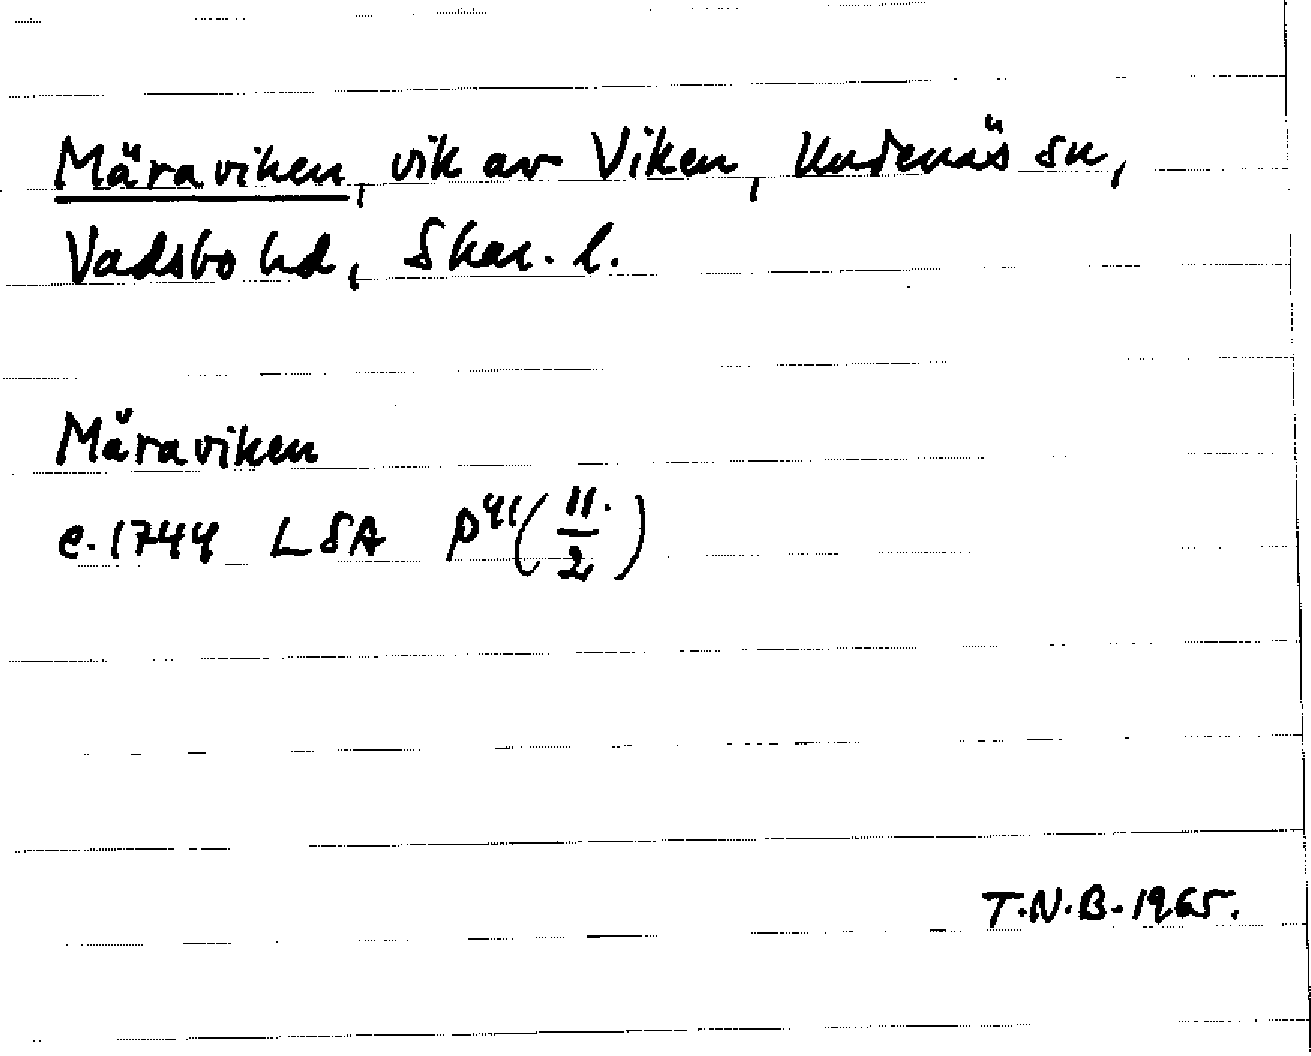 Märaviken, vik av Viken, Undenäs sn,
Vadsbo hd, Skar. l.
Märaviken
c. 1744 LSA P41 (11/2)
T.N.B. 1965.